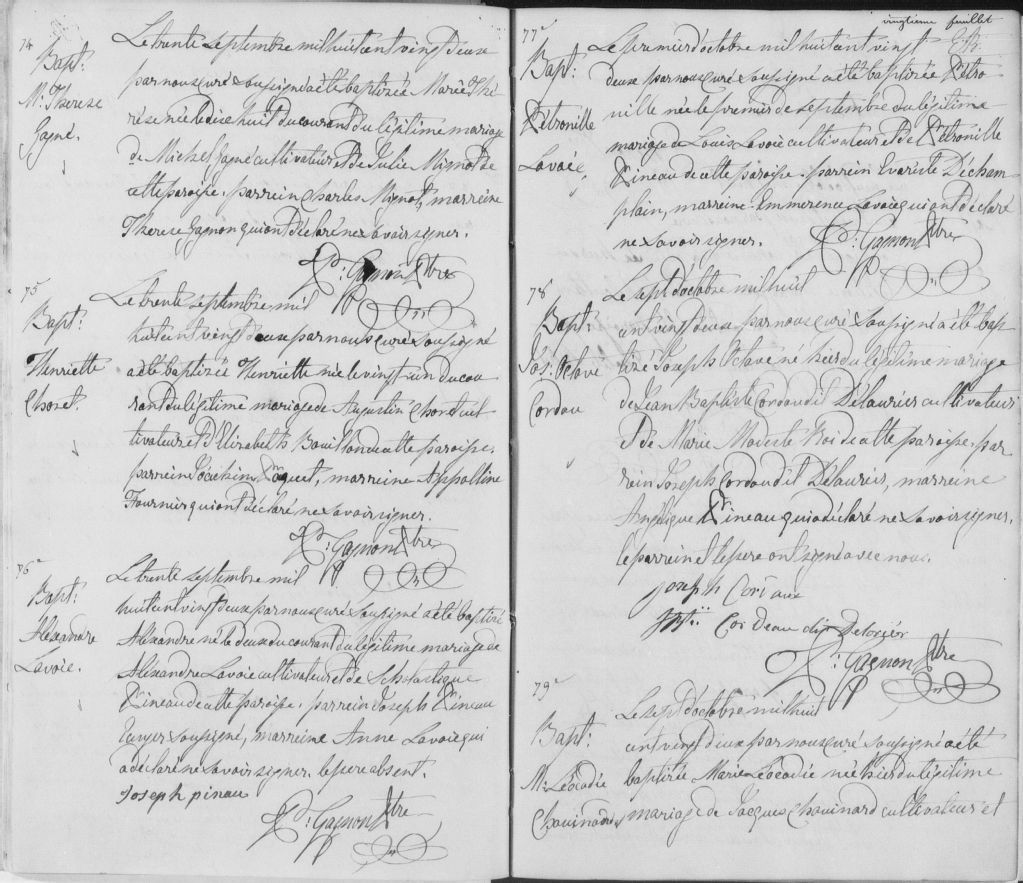 74
Bapt:
M: Therese
Gagné.
Le trente Septembre mil huit cent vingt deux
par nous curé soussigné a été baptisée Marie Thé
rése née le dix huit du courant du légitime mariage
de Michel Gagné cultivateur et de Julie Mignot de
cette paroisse. parrein Charles Mignot, marreine
Therese Gagnon qui ont déclaré ne savoir signer.
Gagnon Ptre
75
Bapt:
Henriette
Choret.
Le trente septembre mil
huit cent vingt deux par nous curé soussigné
a été baptisée Henriette née le vingt un du cou
rant du légitime mariage de Augustin Choret cul
tivateur et d'Elizabeth Bouillon de cette paroisse.
parrein Joachim Paquet, marreine Appolline
Fournier qui ont déclaré ne savoir signer.
Gagnon Ptre
76
Bapt:
Alexandre
Lavoie.
Le trente septembre mil
huit cent vingt deux par nous curé soussigné a été baptisé
Alexandre né le deux du courant du légitime mariage de
Alexandre Lavoie cultivateur et de Scholastique
Pineau de cette paroisse. parrein Joseph Pineau
soussigné, marreine Anne Lavoie qui
a déclaré ne savoir signer. le pere absent.
Joseph pinau
Gagnon Ptre
vingtieme feuillet
77
Bapt:
Pétronille
Lavoie
Le premier d'octobre mil huit cent vingt
deux par nous curé soussigné a été baptisée Pétro
nille née le premier de septembre du légitime
mariage de Louis Lavoie cultivateur et de Pétronille
Pineau de cette paroisse. parrein Evariste Décham
plain, marreine Emmerence Lavoie qui ont déclaré
ne savoir signer.
Gagnon Ptre
78
Bapt:
Jos: Octave
Cordau
Le sept d'octobre mil huit
cent vingt deux par nous curé soussigné a été bap
tisé Joseph Octave né hier du légitime mariage
de Jean Baptiste Cordau dit Délaurier cultivateur
et de Marie Modeste Roi de cette paroisse. par
rein Joseph Cordau dit Délaurier, marreine
Angélique Pineau qui a déclaré ne savoir signer.
le parrein et le pere ont signé avec nous.
Joseph
Gagnon Ptre
79
Bapt:
M: Léocadie
Chouinard
Le sept d'octobre mil huit
cent vingt deux par nous curé soussigné a été
baptisée Marie Léocadie née hier du légitime
mariage de Jacques Chouinard cultivateur et